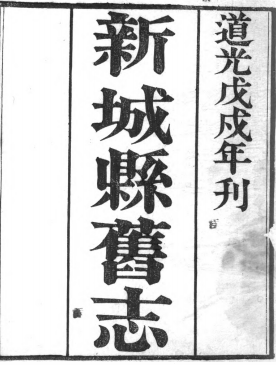 道光戊戌年刊
新城縣舊志